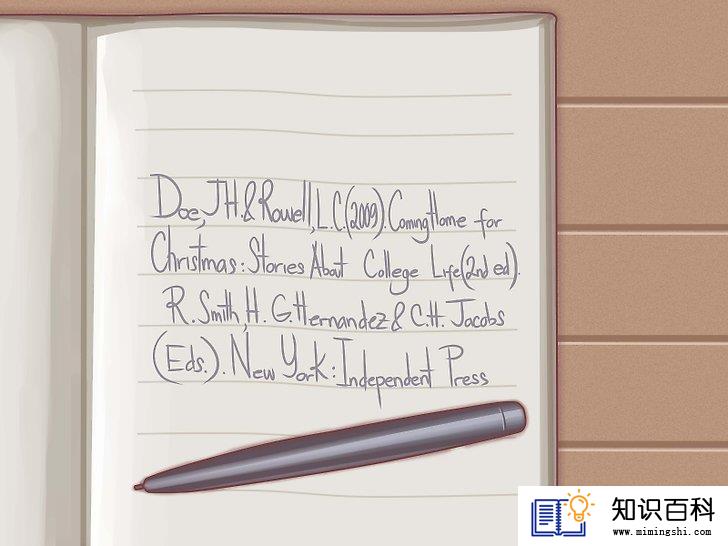 Doe, J.H. & Rowell, L.C. (2009). Coming Home for
Christmas: Stories About College Life (2nd ed).
R. Smith, H. G. Hernandez & C.H. Jacobs
(Eds.). New York: Independent Press
知识百科
www.mimingshi.com